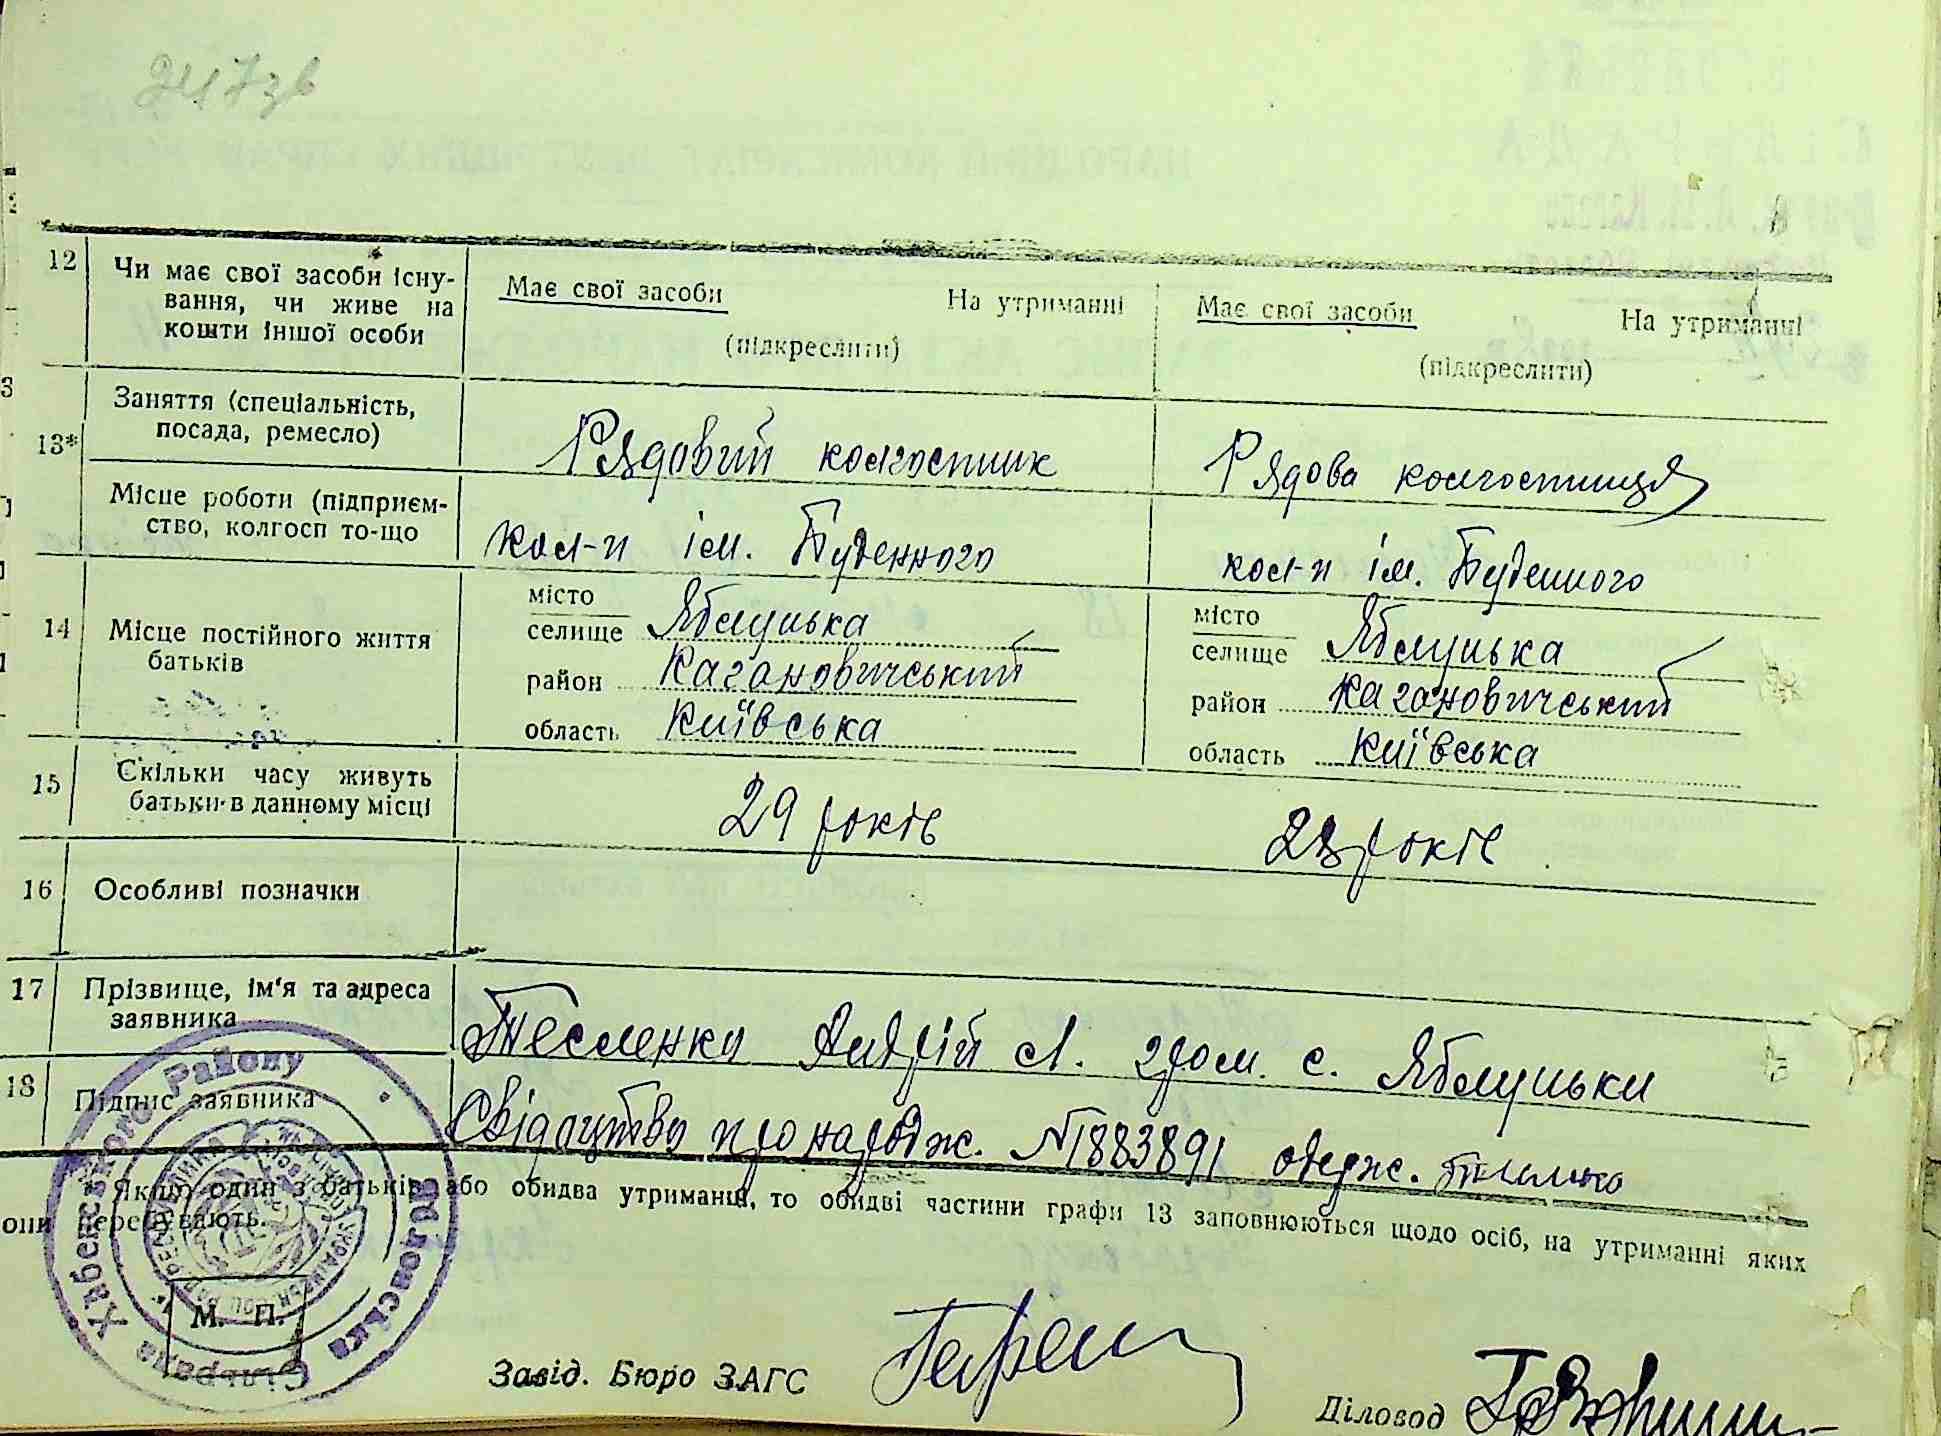 247зв
12 Чи має свої засоби існу-
вання, чи живе на
кошти іншої особи
Має свої засоби На утриманні
(підкреслити)
Має свої засоби На утриманні
(підкреслити)
13* Заняття (спеціальність,
посада, ремесло)
Рядовий колгоспник
Рядова колгоспниця
Місце роботи (підприєм-
ство, колгосп то-що
кол-п ім. Буденного
кол-п ім. Буденного
14 Місце постійного життя
батьків
місто
селище Яблунька
район Кагановичський
область Київська
місто
селище Яблунька
район Кагановичський
область Київська
15 Скільки часу живуть
батьки в данному місці
29 років
23 років
16 Особливі позначки
17 Прізвище, ім'я та адреса
заявника
Тесленко Андрій Л. гром. с. Яблуньки
18 Підпис заявника
Свідоцтво про народж. №1883891 одерж.
* Якщо один з батьків або обидва утриманці, то обидві частини графи 13 заповнюються щодо осіб, на утриманні яких
они перебувають.
Хабенського Району
Сільрада
М. П.
Завід. Бюро ЗАГС
Діловод